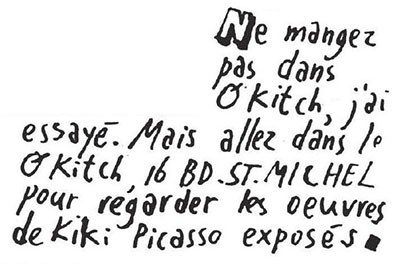 Ne mangez
pas dans
O'Kitch, j'ai
essayé. Mais allez dans le
O'Kitch, 16 BD. ST. MICHEL
pour regarder les oeuvres
de Kiki Picasso exposés.